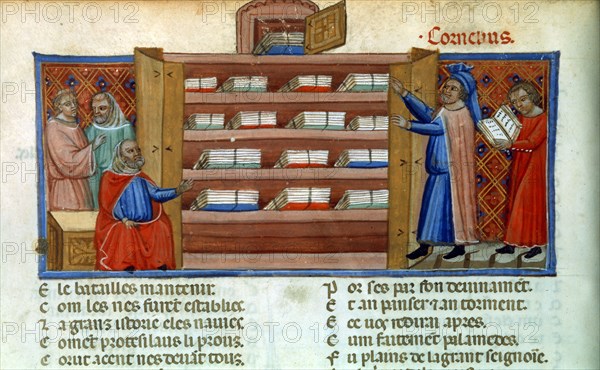 Cornelius.
E le batailles mantenir.
C om les nes furẽt establiez
L a grans istorie e les nauies
C omẽt protesilaus li prous.
C orut acent nes deuãt tous.
P or ses par son deuinamẽt.
E t an pinser ⁊ an torment.
C e uoz redirai apres.
C um faitemẽt palamedes.
F u plains de la grant seignoiē.